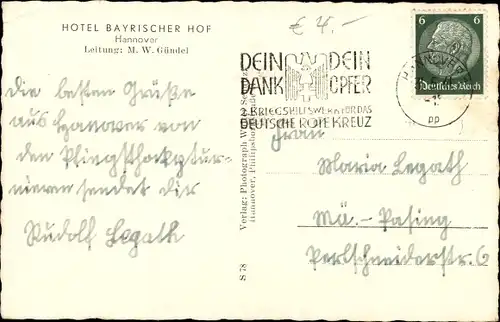 HOTEL BAYRISCHER HOF
Hannover
Leitung: M. W. Gündel
€ 4.-
6 6
Deutsches Reich
HANNOVER
pp
DEIN DEIN
DANK OPFER
2. KRIEGSHILFSWERK FÜR DAS
DEUTSCHE ROTE KREUZ
die besten Grüße
aus Hanover von
den
nieren sendet dir
Rudolf Legath
Verlag: Photograph
Hannover,
S 78
Frau
Maria Legath
Mü.-Pasing
Perlschneiderstr. 6